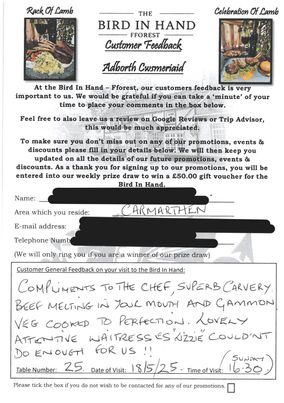 Rack Of Lamb
THE
BIRD IN HAND
FFOREST
Customer Feedback
Adborth Cwsmeriaid
Celebration Of Lamb
At the Bird In Hand – Fforest, our customers feedback is very
important to us. We would be grateful if you can take a ‘minute’ of your
time to place your comments in the box below.
Feel free to also leave us a review on Google Reviews or Trip Advisor,
this would be much appreciated.
To make sure you don't miss out on any of our promotions, events &
discounts please fill in your details below. We will then keep you
updated on all the details of our future promotions, events &
discounts. As a thank you for signing up to our promotions, you will be
entered into our weekly prize draw to win a £50.00 gift voucher for the
Bird In Hand.
Name:
Area which you reside: CARMARTHEN
E-mail address:
Telephone Numb
(We will only ring you if you are a winner of our prize draw)
Customer General Feedback on your visit to the Bird In Hand:
COMPLIMENTS TO THE CHEF, SUPERB CARVERY
BEEF MELTING IN YOUR MOUTH AND GAMMON
VEG COOKED TO PERFECTION. LOVELY
ATTENTIVE WAITRESS "LIZZIE" COULDN'T
DO ENOUGH FOR US !!
(SUNDAY)
Table Number: 25 Date of Visit: 18/5/25 Time of Visit: 16:30
Please tick the box if you do not wish to be contacted for any of our promotions.